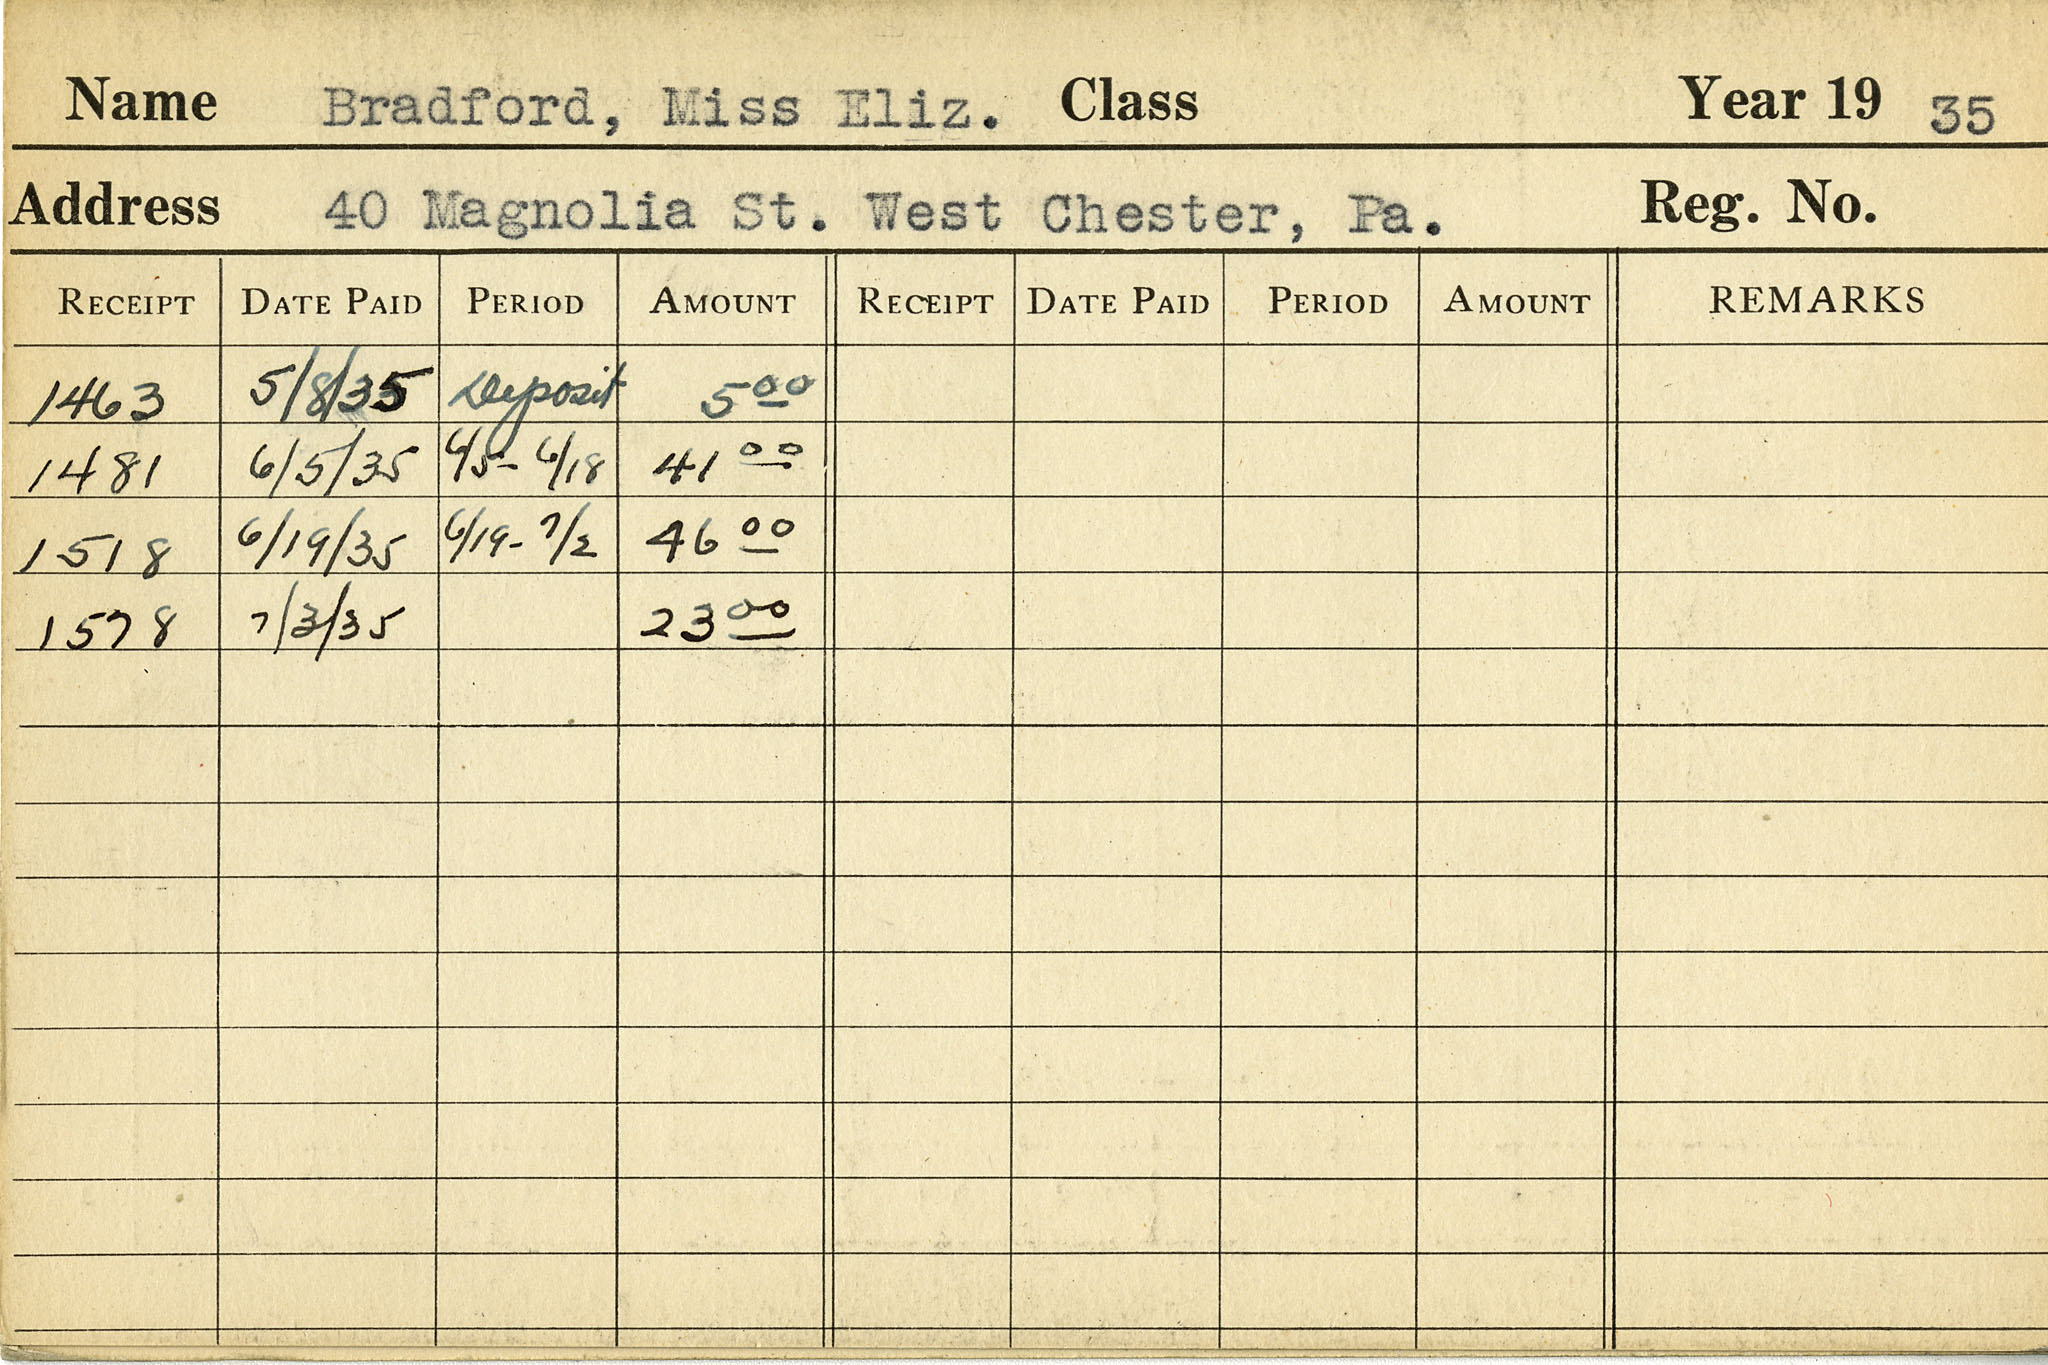 Name Bradford, Miss Eliz. Class Year 19 35
Address 40 Magnolia St. West Chester, Pa. Reg. No.
RECEIPT DATE PAID PERIOD AMOUNT RECEIPT DATE PAID PERIOD AMOUNT REMARKS
1463 5/8/35 Deposit 5 00
1481 6/5/35 6/5- 6/18 41 00
1518 6/19/35 6/19- 7/2 46 00
1578 7/3/35 23 00